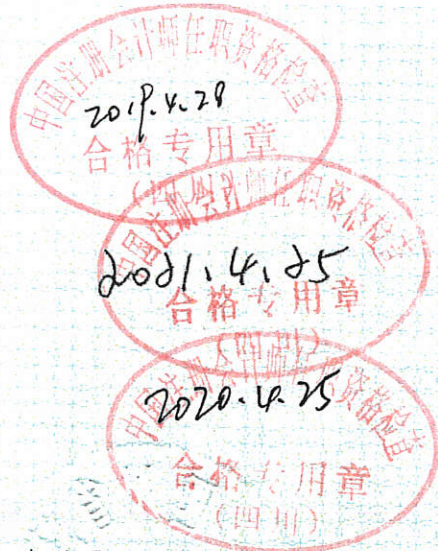 中国注册会计师任职资格检查
2019.4.28
合格专用章
中国注册会计师任职资格检查
2021.4.25
合格专用章
中国注册会计师任职资格检查
2020.4.25
合格专用章
(四川)